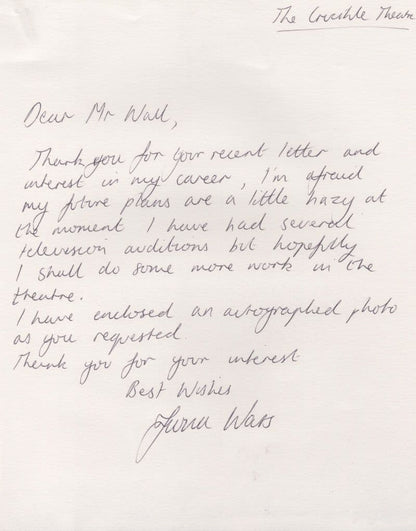 The Crucible Theatre
Dear Mr Wall,
Thank you for your recent letter and
interest in my career, I'm afraid
my future plans are a little hazy at
the moment I have had several
television auditions but hopefully
I shall do some more work in the
theatre.
I have enclosed an autographed photo
as you requested.
Thank you for your interest
Best Wishes